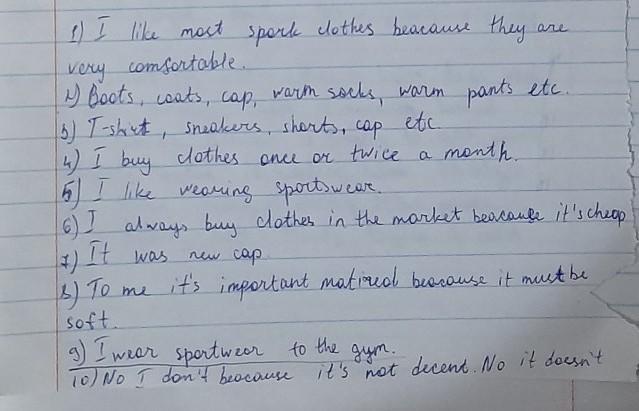 1) I like most spork clothes beacause they are
very comsortable.
2) Boots, coats, cap, warm socks, warm pants etc.
3) T-shirt, sneakers, shorts, cap etc
4) I buy clothes once or twice a month.
5) I like wearing sportswear.
6) I always buy clothes in the market beacauge it's cheap
7) It was new cap
8) To me it's important matireal beacause it must be
soft.
9) I wear sportwear to the gym.
10) No I don't beacause it's not decent. No it doesn't